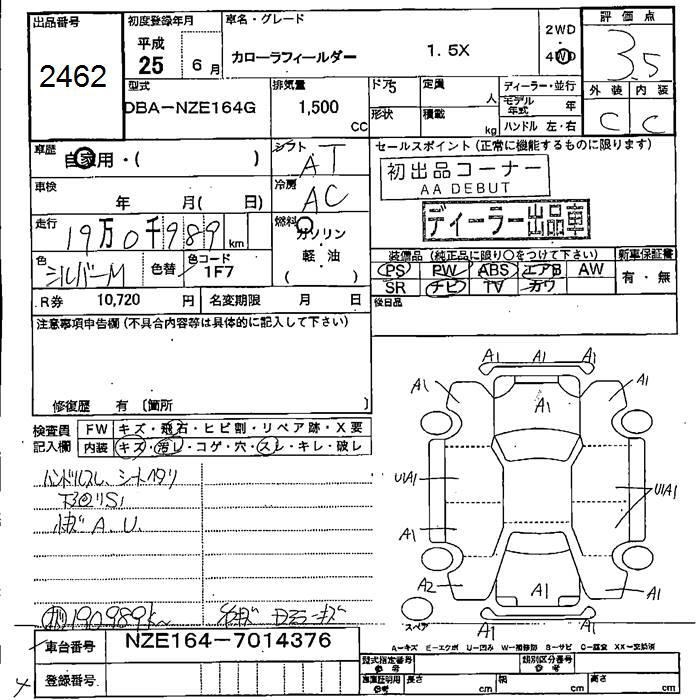 出品番号
2462
初度登録年月
平成
25 6月
車名・グレード
カローラフィールダー 1.5X
2WD
4WD
評価点
3.5
型式
DBA-NZE164G
排気量
1,500
CC
ドア
5
形状
定員
人
積載
kg
ディーラー・並行
モデル年式 年
ハンドル 左・右
外装 内装
C C
車歴
自家用・( )
シフト
AT
セールスポイント (正常に機能するものに限ります)
初出品コーナー
AA DEBUT
ディーラー出品車
車検
年 月( 日)
冷房
AC
走行
19万0千989km
燃料
ガソリン
・
軽・油
色
シルバーM
色替
色コード
1F7
装備品 (純正品に限り〇をつけて下さい)
新車保証書
PS PW ABS エアB AW
SR ナビ TV カワ
有・無
R券 10,720 円
名変期限 月 日
後日品
注意事項申告欄 (不具合内容等は具体的に記入して下さい)
修復歴 有 〔箇所 〕
検査員
記入欄
FW キズ・飛石・ヒビ割・リペア跡・X要
内装 キズ・汚レ・コゲ・穴・スレ・キレ・破レ
ハンドルスレ、シートヘタリ
下回りS1
小キズ A.U.
190989km
車台番号
NZE164-7014376
登録番号
A1 A1 A1
A1 A1 A1
U1A1 U1A1
A1
A2 A1 A1
A1 A1
スペア
A-キズ E-エクボ U-凹み W-補修跡 S-サビ C-腐食 XX-交換済
型式指定番号
参考
類別区分番号
参考
車庫証明用
参考
長さ cm
幅 cm
高さ cm